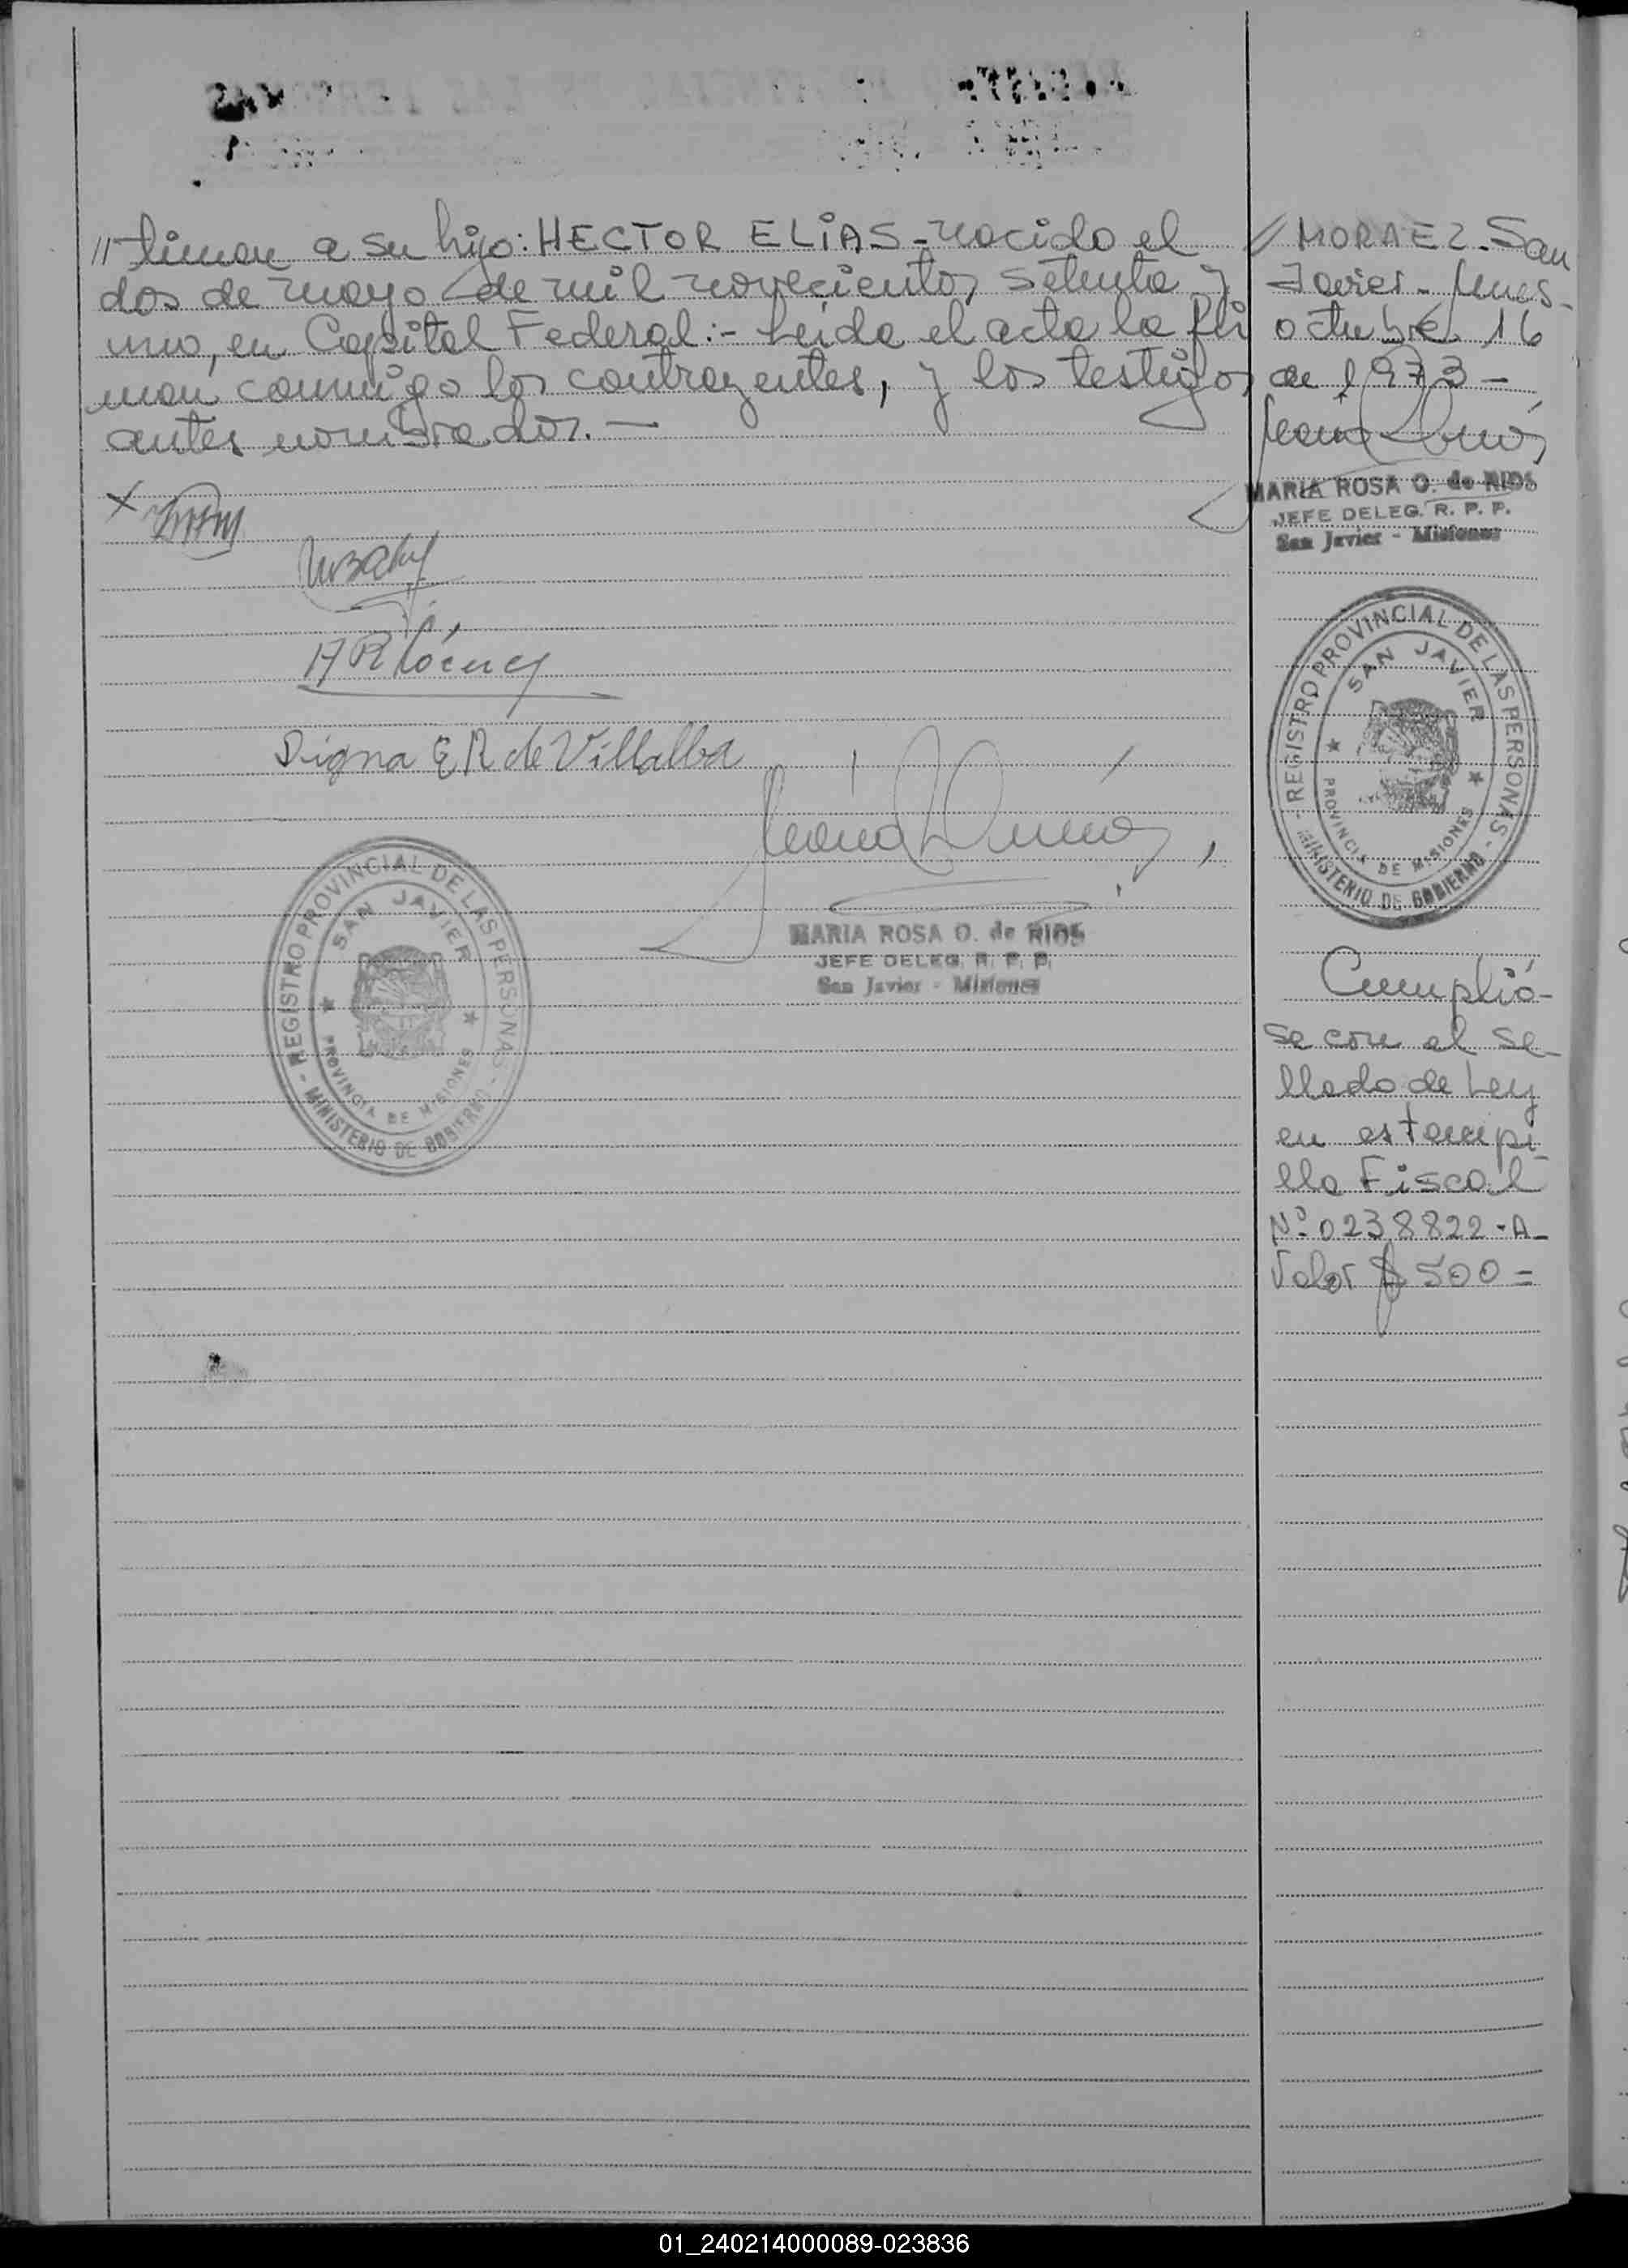 // timan a su hijo: HECTOR ELIAS - nacido el
dos de mayo de mil novecientos setenta y
uno, en Capital Federal:- Leida el acta la fir
man conmigo los contrayentes, y los testigos
antes nombrados. -
Digna E R de Villalba
MARIA ROSA O. de RIOS
JEFE DELEG. R. P. P.
San Javier - Misiones
REGISTRO PROVINCIAL DE LAS PERSONAS
- MINISTERIO DE GOBIERNO -
SAN JAVIER
PROVINCIA DE MISIONES
/ MORAEZ - San
Javier -
octubre 16
de 1973 -
MARIA ROSA O. de RIOS
JEFE DELEG. R. P. P.
San Javier - Misiones
REGISTRO PROVINCIAL DE LAS PERSONAS
- MINISTERIO DE GOBIERNO -
SAN JAVIER
PROVINCIA DE MISIONES
Cumplió-
se con el Se-
llado de Ley
en estampi-
lla Fiscal
Nº 0238822-A-
Valor $ 500=
01_240214000089-023836